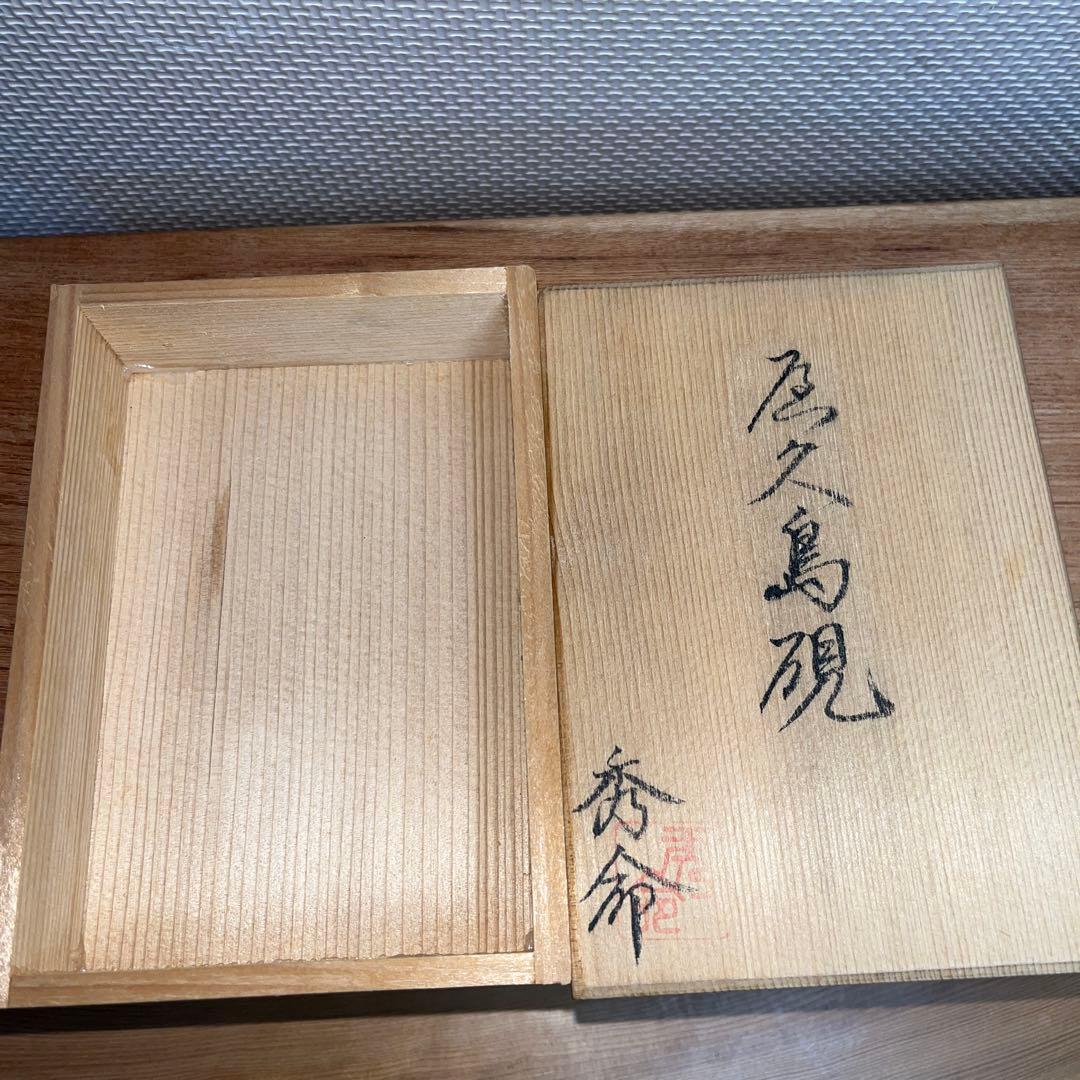 屋久島硯
秀命